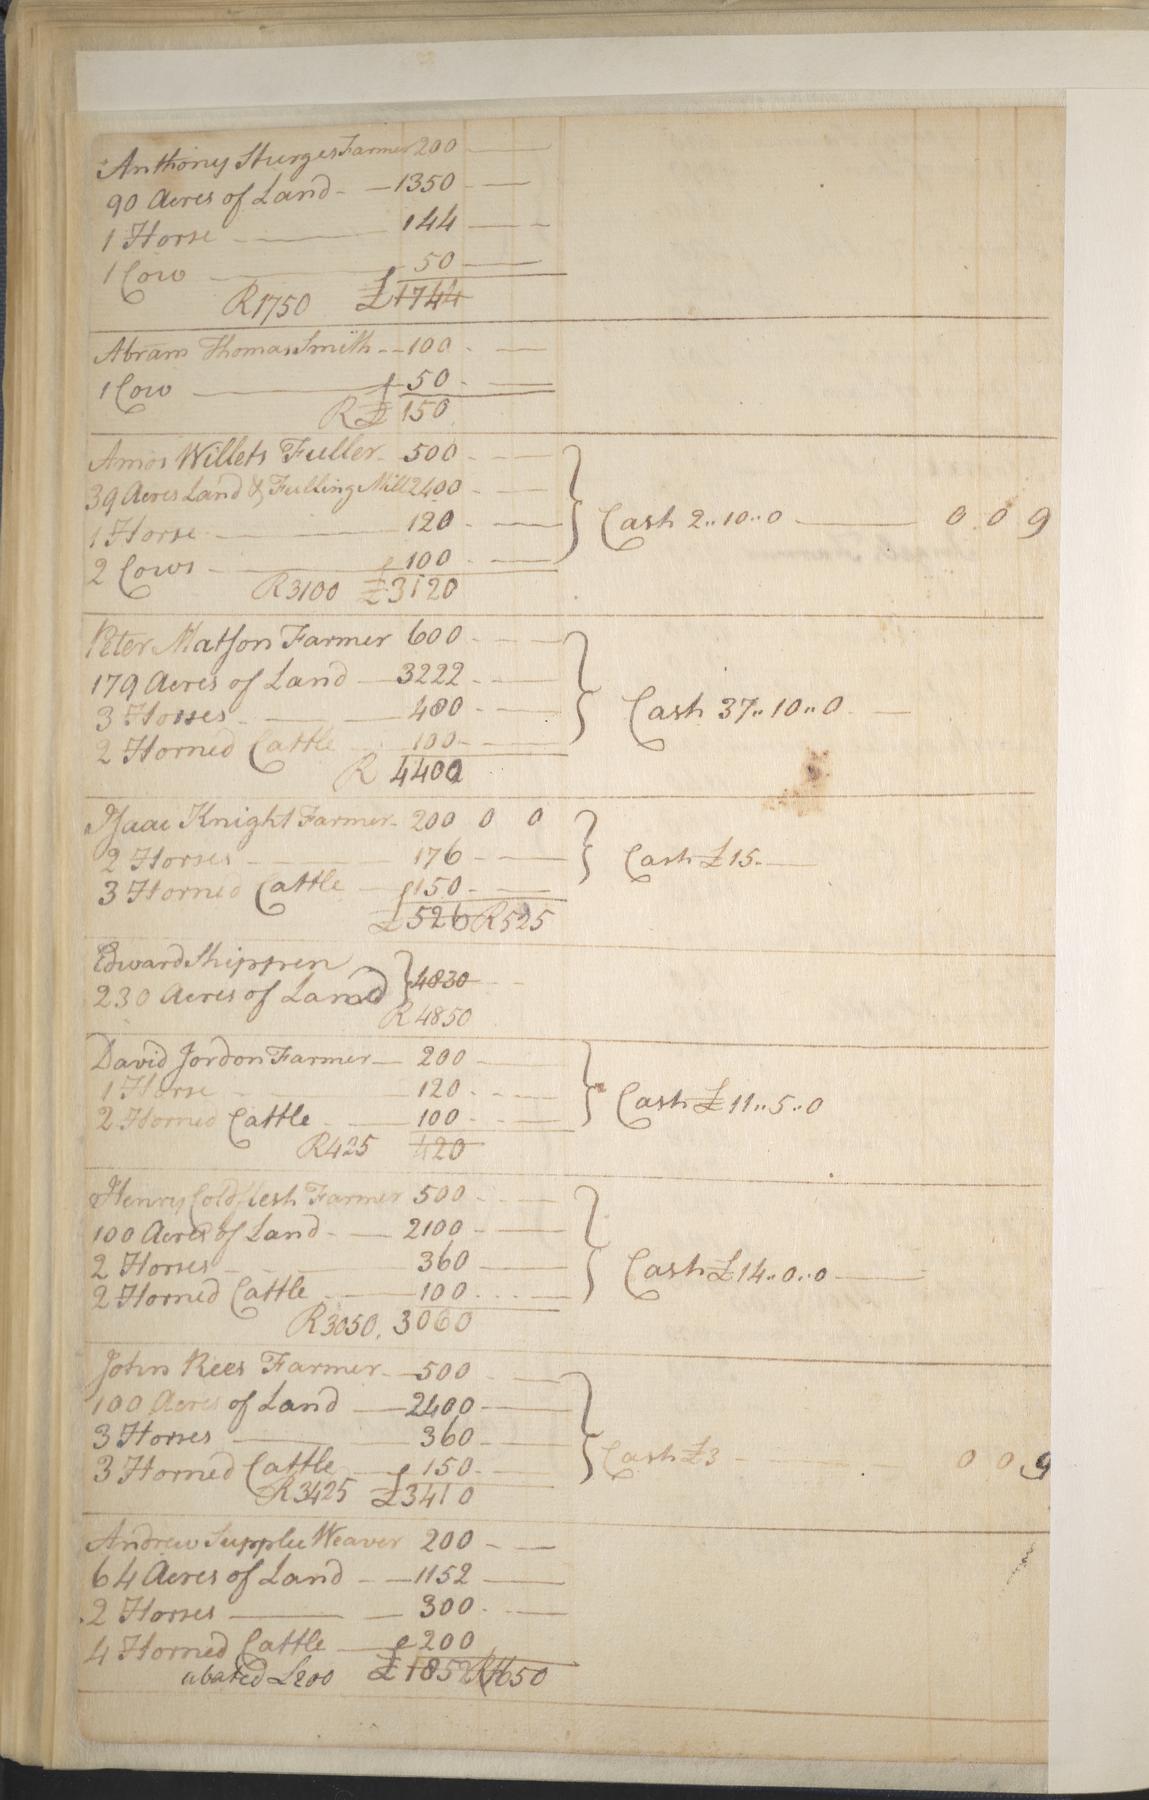 Anthony Sturges Farmer 200
90 Acres of Land - 1350
1 Horse 144
1 Cow 50
R1750 £1744
Abram Thomas Smith 100
1 Cow 50
R £ 150
Amos Willets Fuller 500
39 Acres Land & Fulling Mill 2400
1 Horse 120
Cash 2..10..0 0 0 9
2 Cows 100
R3100 £3120
Peter Matson Farmer 600
179 Acres of Land 3222
3 Horses 480
Cash 37..10..0
2 Horned Cattle 100
R 4400
Isaac Knight Farmer 200 0 0
2 Horses 176
Cash £15
3 Horned Cattle 150
£526 R525
Edward Shippen
230 Acres of Land 4830
R4850
David Jordon Farmer 200
1 Horse 120
Cash £11..5..0
2 Horned Cattle 100
R425 420
Henry Coldflesh Farmer 500
100 Acres of Land 2100
2 Horses 360
Cash £14..0..0
2 Horned Cattle 100
R3050. 3060
John Rees Farmer 500
100 Acres of Land 2400
3 Horses 360
Cash £3 0 0 9
3 Horned Cattle 150
R3425 £3410
Andrew Supplee Weaver 200
64 Acres of Land 1152
2 Horses 300
4 Horned Cattle 200
abated £200 £1852 R1650